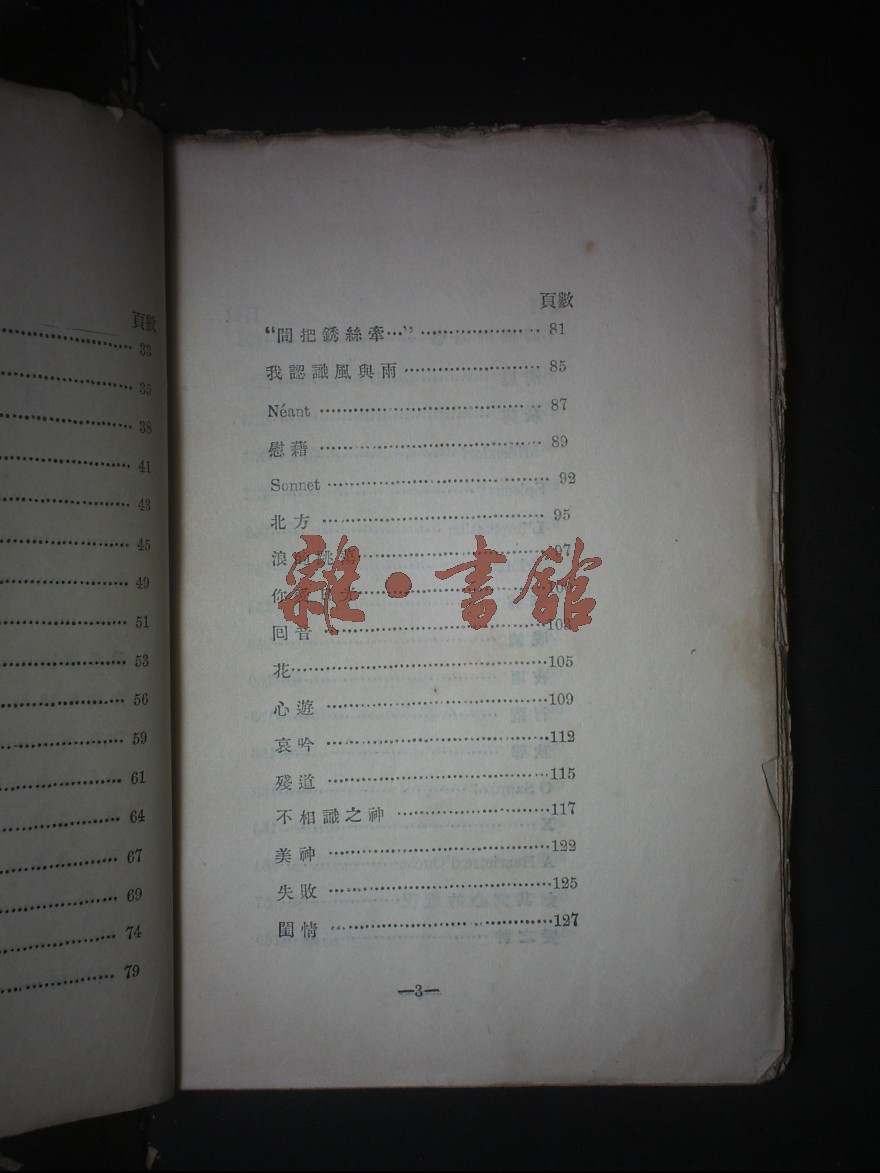 頁數
33
35
38
41
43
45
49
51
53
56
59
61
64
67
69
74
79
頁數
“間把銹絲牽…” 81
我認識風與雨 85
Néant 87
慰藉 89
Sonnet 92
北方 95
浪 97
你
回音 103
花 105
心遊 109
哀吟 112
殘道 115
不相識之神 117
美神 122
失敗 125
閨情 127
—3—
雜·書館